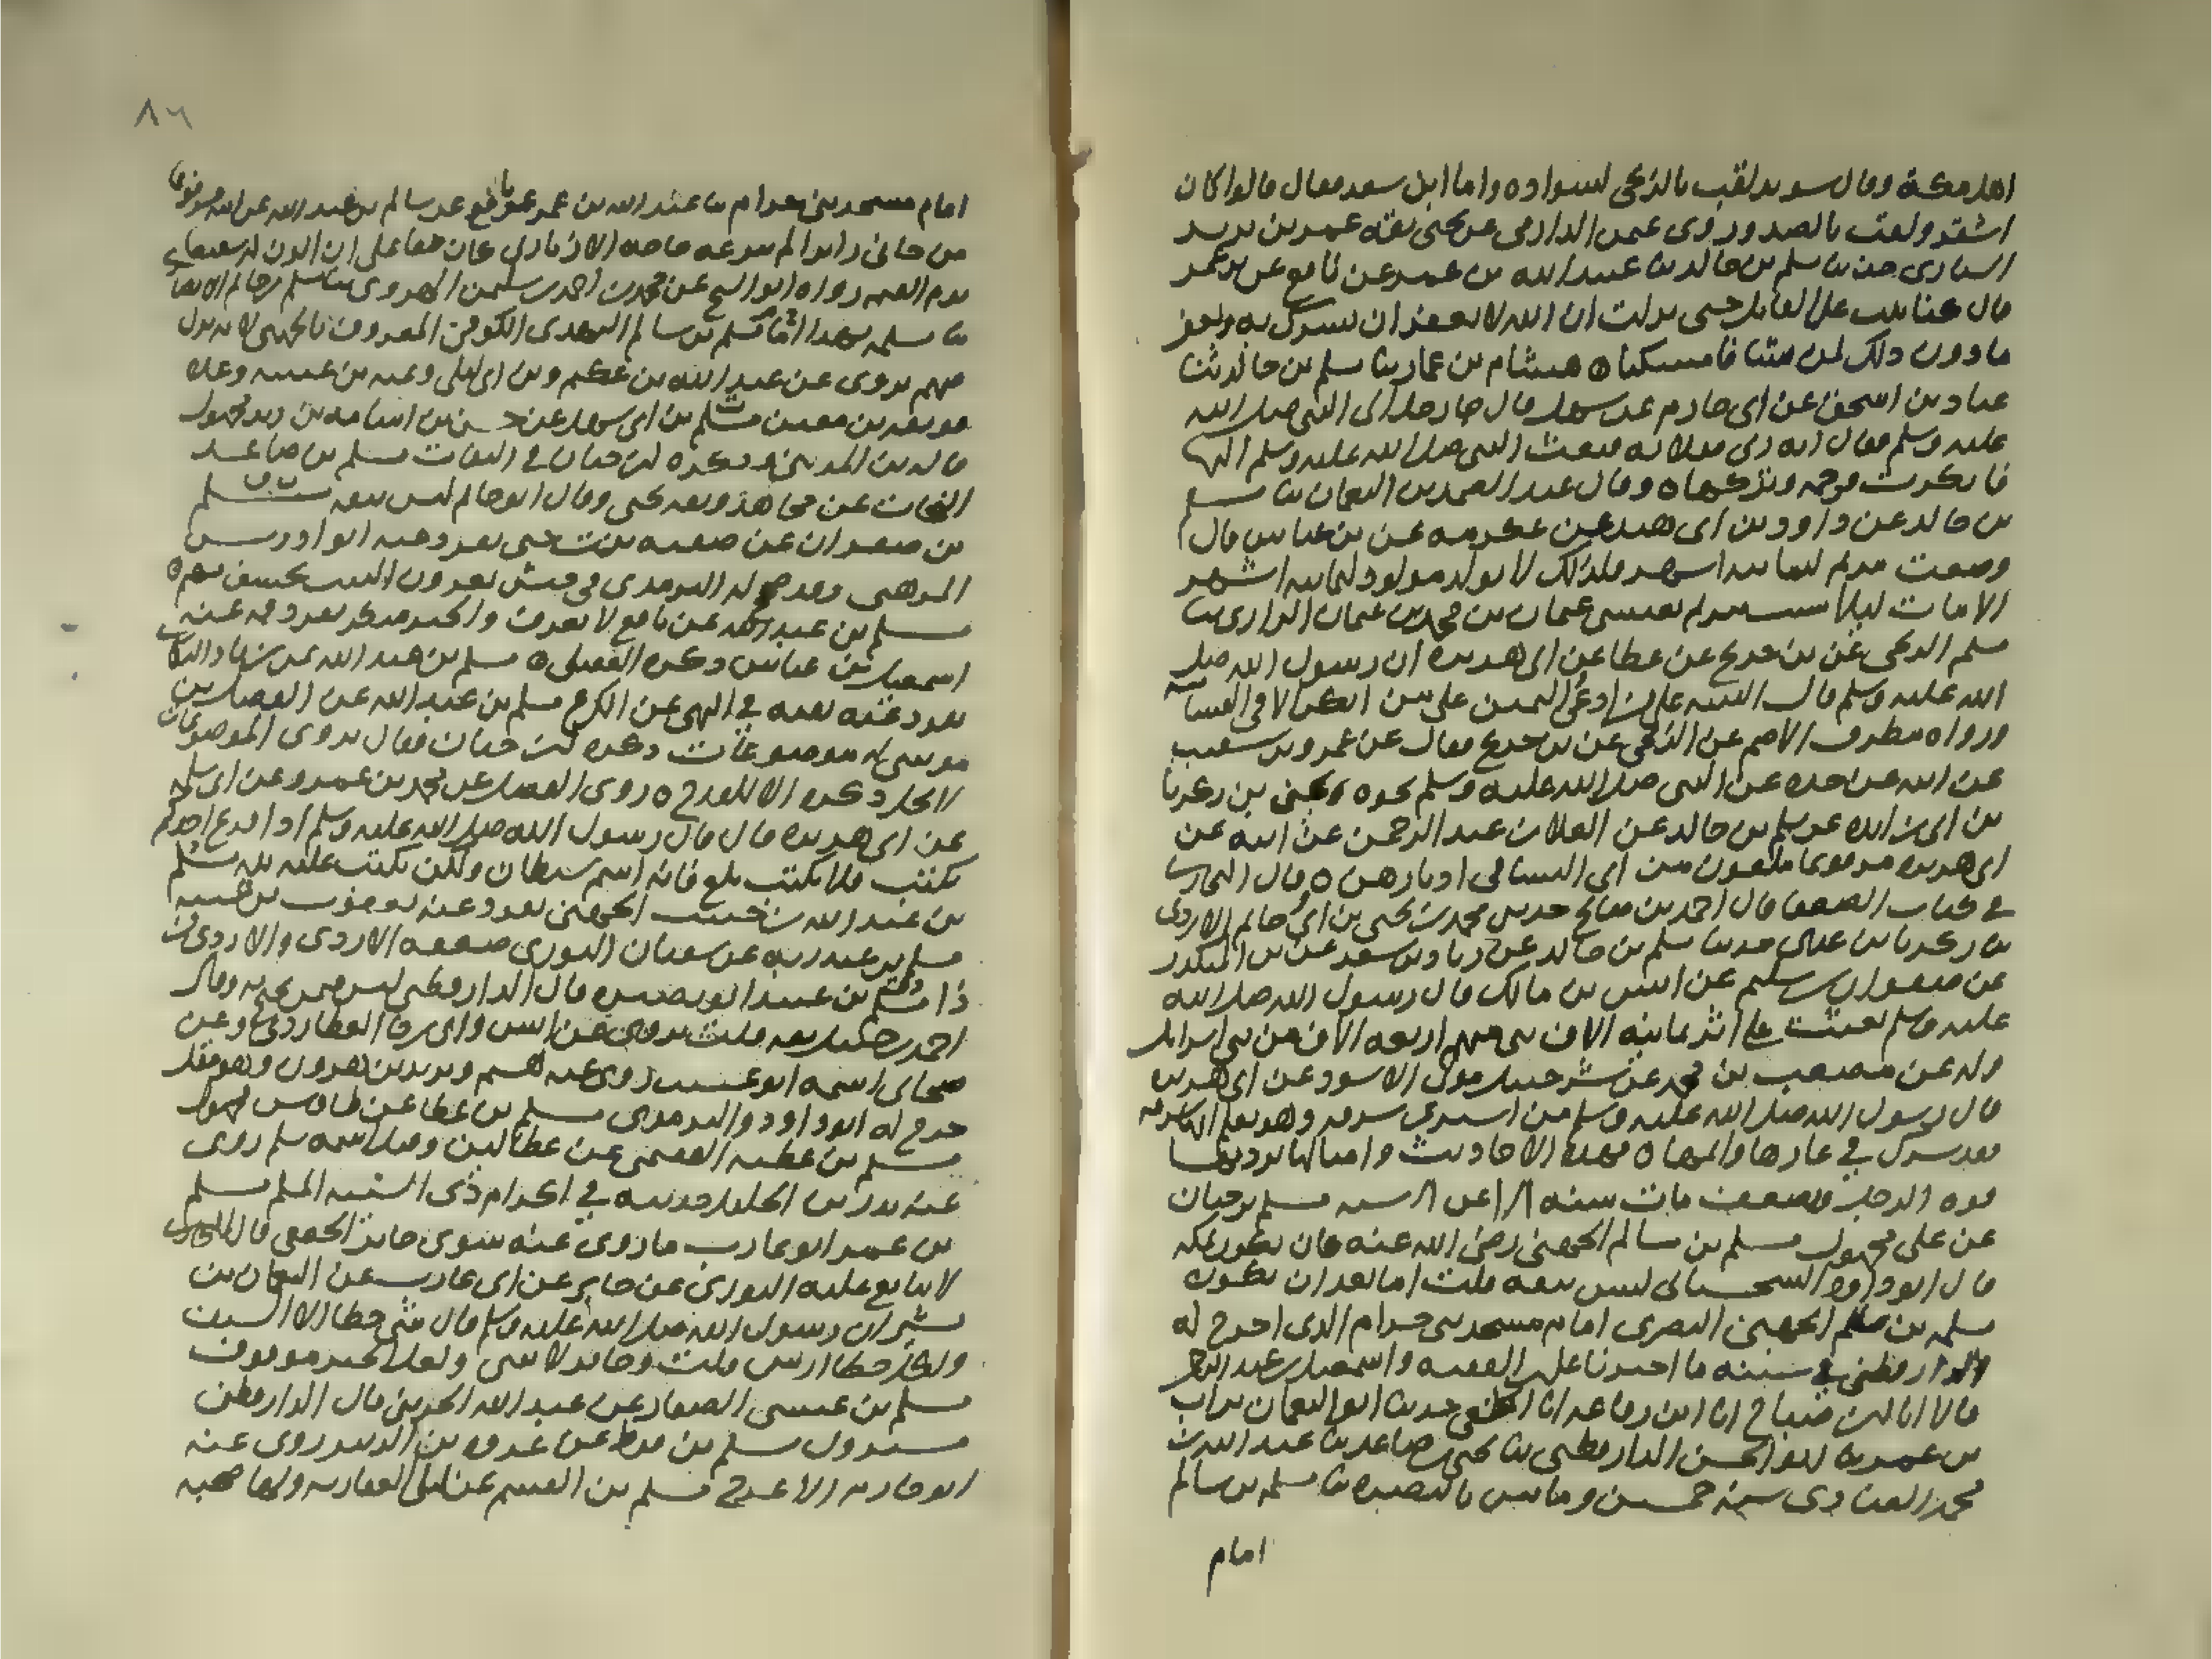 اهل مكة وقال سويد لقب بالزنجي لسواده واما ابن سعد فقال قالوا كان
اشقر ولقب بالضد وروى عثمن الدارمي عن يحيى ثقة عمر بن يزيد
السياري حدثنا مسلم بن خالد ثنا عبيد الله بن عمر عن نافع عن بن عمر
قال كنا نبت على القاتل حتى نزلت ان الله لا يغفر ان يشرك به ويغفر
ما دون ذلك لمن يشا فامسكنا ه هشام بن عمار ثنا مسلم بن خالد ثنا
عباد بن اسحق عن ابي حازم عن سهل قال جا رجل الى النبي صلى الله
عليه وسلم فقال انه زنى بفلانة فبعث النبي صلى الله عليه وسلم اليها
فانكرت فرجمه وتركها ه وقال عبد الصمد بن النعمان ثنا مسلم
بن خالد عن داود بن ابي هند عن عكرمة عن بن عباس قال
وضعت مريم لثمانية اشهر فلذلك لا يولد مولود لثمانية اشهر
الا مات ليلا عيسى عثمان بن محمد بن عثمان الرازي ثنا
مسلم الزنجي عن بن جريج عن عطا عن ابي هريرة ان رسول الله صلى
الله عليه وسلم قال البينة على من ادعى واليمين على من انكر الا في القسامة
ورواه مطرف الاصم عن الزنجي عن بن جريج فقال عن عمرو بن شعيب
عن ابيه عن جده عن النبي صلى الله عليه وسلم نحوه ه يحيى بن زكريا
بن ابي زائدة عن مسلم بن خالد عن العلا بن عبد الرحمن عن ابيه عن
ابي هريرة مرفوعا ملعون من اتى النسا في ادبارهن ه وقال البخاري
في كتاب الضعفا قال احمد بن صالح حدثني محمد بن يحيى بن ابي حاتم الازدي
بن زكريا بن عدي حدثنا مسلم بن خالد عن زياد بن سعد عن بن المنكدر
عن صفوان بن سليم عن انس بن مالك قال رسول الله صلى الله
عليه وسلم بعثت على اثر ثمانية الاف نبي منهم اربعة الاف من بني اسرائيل
وله عن مصعب بن محمد عن شرحبيل مولى الاسود عن ابي هريرة
قال رسول الله صلى الله عليه وسلم من اشترى سرقة وهو يعلم انها سرقة
فقد شرك في عارها واثمها ه فهذه الاحاديث وامثالها ترد بها
قوة الرجل ويضعف مات سنة مسلم بن حبان
عن علي مجهول مسلم بن سالم الجهني رضي الله عنه كان يكون بمكة
قال ابو داود السجستاني ليس بثقة قلت اما بعد ان يكون
مسلمة بن سالم الجهني البصري امام مسجد بني حرام الذي اخرج له
الدارقطني في سننه ما اخبرنا علي الفقيه واسمعيل بن عبد الرحمن
قالا انا ابن صباح انا ابن رفاعة انا الخلعي حدثنا ابو النعمان تراب
بن عمر ثنا ابو الحسن الدارقطني ثنا يحيى بن صاعد ثنا عبد الله بن
محمد العبادي سنة خمسين ومايتين بالبصرة ثنا مسلمة بن سالم
امام
٨٦
امام مسجد بني حرام ثنا عبد الله بن عمر عن نافع عن سالم بن عبد الله عن ابيه مرفوعا
من جاني زائرا لم تنزعه حاجة الا زيارتي كان حقا علي ان اكون له شفيعا
يوم القيمة رواه ابو الشيخ عن محمد بن احمد بن سليمن الهروي ثنا مسلم بن حاتم الانصاري
ثنا مسلمة بهذا اما مسلم بن سالم النهدي الكوفي المعروف بالجهني لانه نزل
فيهم يروي عن عبد الله بن عكيم وبن ابي ليلى وعنه بن عيينة وعدة
فوثقه بن معين مسلم بن ابي سهل عن حسن بن اسامة بن زيد مجهول
قاله بن المديني وذكره ابن حبان في الثقات مسلم بن صاعد
النحات عن مجاهد وثقه يحيى وقال ابو حاتم ليس بثقة ت ق مسلم
بن صفوان عن صفية بنت حيي تفرد عنه ابو ادريس
المرهبي وقد صح له الترمذي في جيش يغزون البيت يخسف بهم ه
مسلم بن عبد الله عن نافع لا يعرف والخبر منكر تفرد به عنه
اسمعيل بن عياش ذكره العقيلي ه مسلم بن عبد الله عن زياد البكائي
تفرد عنه بقية في النهي عن الكرع مسلم بن عبد الله عن الفضل بن
موسى له موضوعات ذكره ابن حبان فقال يروي الموضوعات
لا يحل ذكره الا للقدح ه روى الفضل عن محمد بن عمرو عن ابي سلمة
عن ابي هريرة قال قال رسول الله صلى الله عليه وسلم اذا فرغ احدكم
يكتب فلا يكتب بلغ فانه اسم شيطان ولكن يكتب عليه لله مسلم
بن عبد الله بن خبيب الجهني تفرد عنه يعقوب بن عتبة
مسلم بن عبد ربه عن سفيان الثوري ضعفه الازدي والازدي ت
ذا مسلم بن عبيد ابو نصيرة قال الدارقطني ليس ممن يحتج به وقال
احمد بن حنبل ثقة قلت يروي عن انس وابي رجا العطاردي وعن
صحابي اسمه ابو عسيب روى عنه هشيم ويزيد بن هرون وهو مقل
خرج له ابو داود والترمذي مسلم بن عطا عن طاوس مجهول
مسلم بن عطية الفقيمي عن عطا لين وقيل اسمه سلم روى
عنه بدر بن الخليل حديثه في اكرام ذي الشيبة المسلم مسلم
بن عمرو ابو عازب ما روى عنه سوى جابر الجعفي قال البخاري
لا يتابع عليه الثوري عن جابر عن ابي عازب عن النعمان بن
بشير ان رسول الله صلى الله عليه وسلم قال كل شي خطا الا السيف
ولكل خطا ارش قلت وجابر لا شي ولعل الخبر موقوف
مسلم بن عيسى الصفار عن عبد الله الخريبي قال الدارقطني
متروك مسلم بن قرط عن عروة بن الزبير روى عنه
ابو حازم الاعرج مسلم بن القسم عن ليلى الغفارية ولها صحبة